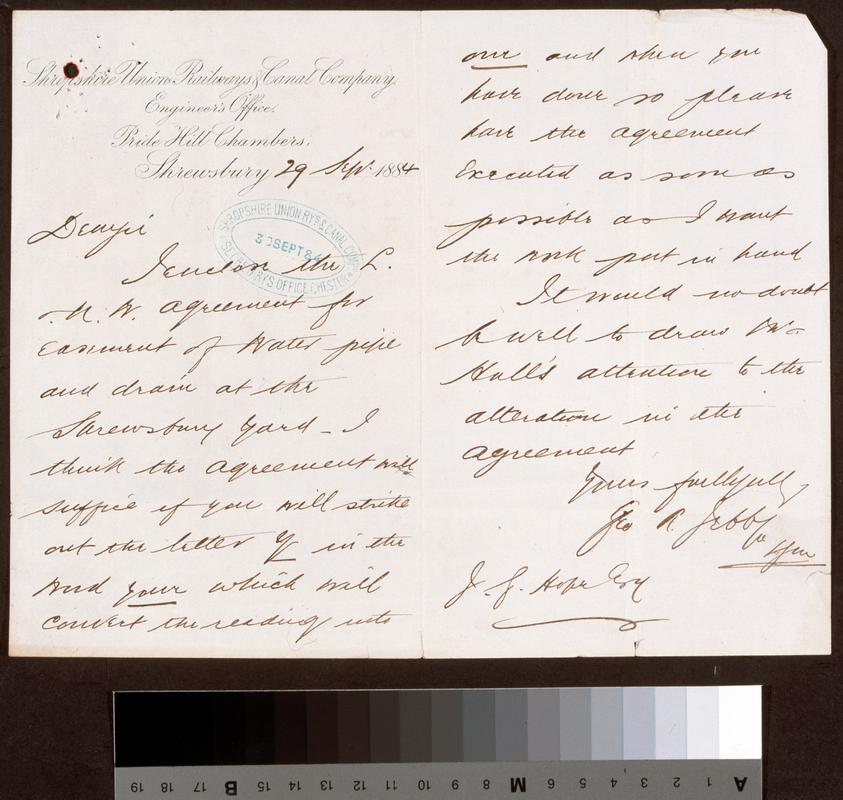 Shropshire Union Railways & Canal Company.
Engineer's Office.
Pride Hill Chambers.
Shrewsbury 29 Sep. 1884
SHROPSHIRE UNION RYS & CANAL COMPY
30 SEPT 84
SECRETARY'S OFFICE CHESTER
Dear Sir
I enclose the L.
. N. W. agreement for
Easement of Water pipe
and drain at the
Shrewsbury Yard - I
think the agreement will
suffice if you will strike
out the letter Y in the
word your which will
convert the reading into
our and when you
have done so please
have the agreement
Executed as soon as
possible as I want
the work put in hand
It would no doubt
be well to draw Mr
Hall's attention to the
alteration in the
agreement
Yours faithfully
Geo R. Jebb
J. G. Hope Esq
19 18 17 B 15 14 13 12 11 10 9 8 M 6 5 4 3 2 1 A